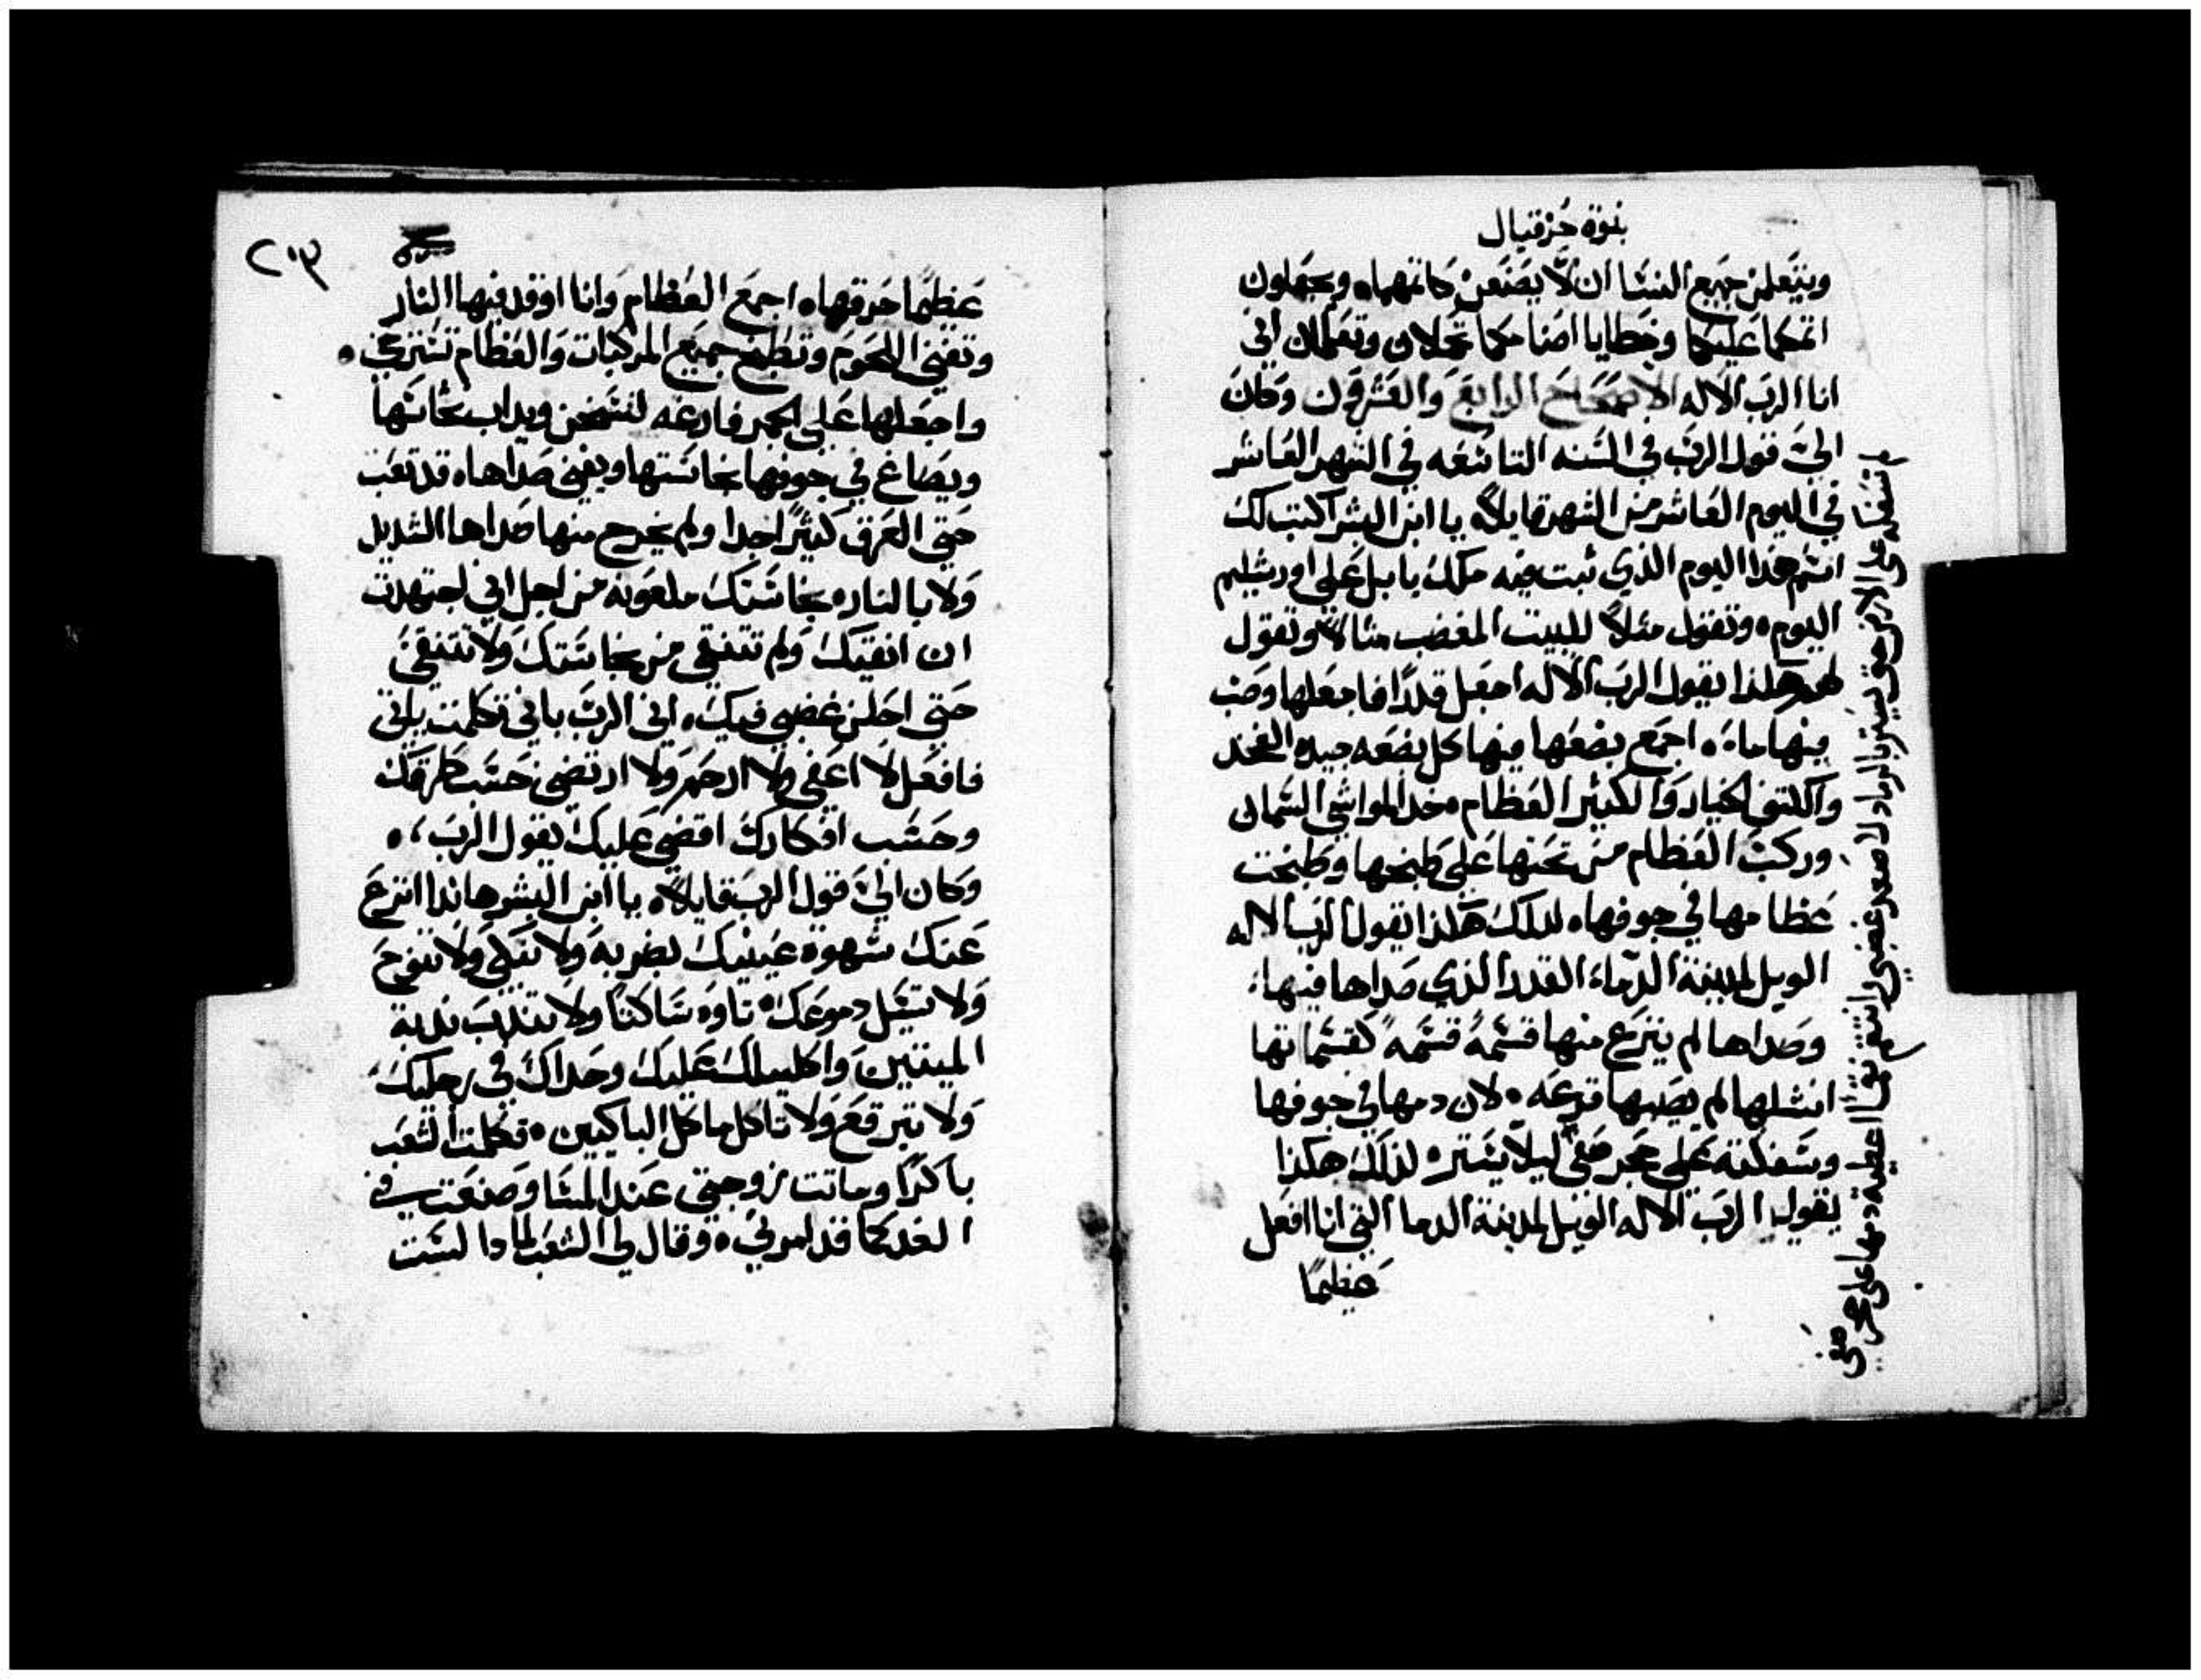 نبوة حزقيال
ويتعلمن جميع النسا ان لا يصنعن كاتمهما ويجعلون
اتمكما عليكما وخطايا اصنامكما تحملان وتعلمان اني
انا الرب الاله الاصحاح الرابع والعشرون وكان
اليّ قول الرب في السنه التاسعه في الشهر العاشر
في اليوم العاشر من الشهر قايلاً يا ابن البشر اكتب لك
اسم هذا اليوم الذي ثبت فيه ملك بابل على اورشليم
اليوم وتقول مثلاً للبيت المغضب مثالاً وتقول
لهم هكذا يقول الرب الاله اجعل قدرًا فاجعلها وصب
فيها ماء اجمع بضعها فيها كل بضعه جيده الفخد
والكتف الخيار والكثير العظام خد المواشي السمان
وركب العظام من تحتها على طبخها وطبخت
عظامها في جوفها لدلك هكذا يقول الرب الاله
الويل لمدينة الدماء القدر الذي صداها فيها
وصداها لم ينزع منها قسمةً قسمةً كقسماتها
انشلها لم يصبها قرعه لان دمها في جوفها
وسفكته على حجر صفي ليلا يستر لذلك هكذا
يقول الرب الاله الويل لمدينة الدما التي انا افعل
عظيمًا
لم تسفكه على الارض حتى يستر بالرماد لاصعد غضبي وانتقم نقما اعطيت دمها على حجر صفي
٢٠٣
عظيمًا حرقها اجمع العظام وانا اوقد فيها النار
وتفني اللحوم وتطبخ جميع المركبات والعظام تسترخي
واجعلها على الجمر فارغه لتسخن ويداب نحاسها
ويصاغ في جوفها نجاستها ويفنى صداها قد تعب
حتى العرق كثيرًا جدا ولم يخرج منها صداها الشديد
ولا بالنار نجاستك ملعونه من اجل اني اجتهدت
ان انقيك ولم تتنقي من نجاستك ولا تتنقي
حتى احلن غضبي فيك اني الرب باني تكلمت ياتي
فافعل لا اعفي ولا ارحم ولا ارتضي حسب طرقك
وحسب افكارك اقضي عليك يقول الرب
وكان اليّ قول الرب قايلاً يا ابن البشر هاندا انزع
عنك شهوة عينيك بضربة ولا تبكي ولا تنوح
ولا تسيل دموعك تاوه ساكتًا ولا تندب ندبة
الميتين واكليلك عليك وحداك في رجليك
ولا تبرقع ولا تاكل ماكل الباكيين فكلمت الشعب
باكرًا وماتت زوجتي عند المسا وصنعت في
الغد كما قد امرني وقال لي الشعب لمادا لست